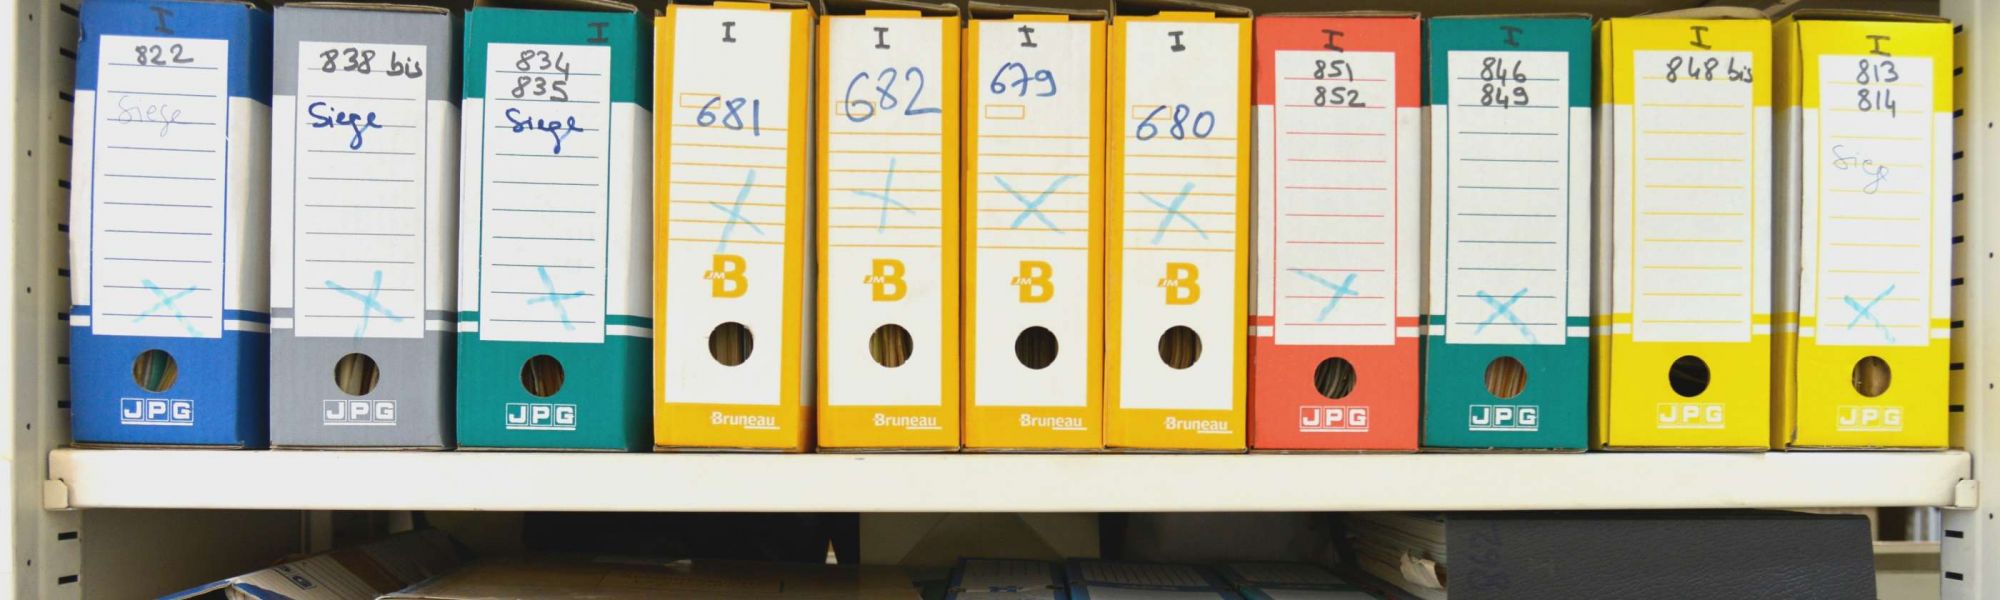 I
822
Siege
JPG
I
838 bis
Siege
JPG
I
834
835
Siege
JPG
I
681
JMB
Bruneau
I
682
JMB
Bruneau
I
679
JMB
Bruneau
I
680
JMB
Bruneau
I
851
852
JPG
I
846
849
JPG
I
848 bis
JPG
I
813
814
Sieg
JPG